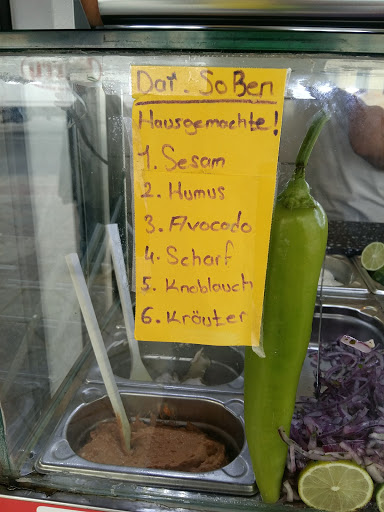 Dat. Soßen
Hausgemachte!
1. Sesam
2. Humus
3. Avocodo
4. Scharf
5. Knoblauch
6. Kräuter